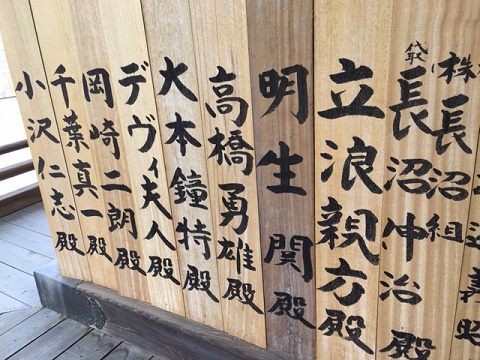 長沼組
長沼伸治殿
立浪親方殿
明生関殿
高橋勇雄殿
大本鐘特殿
デヴィ夫人殿
岡崎二朗殿
千葉真一殿
小沢仁志殿